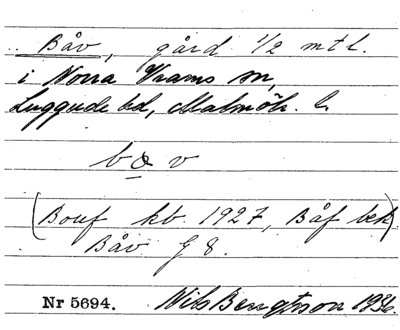 Båv, gård 1/2 mtl.
i Norra Vrams sn,
Luggude hd, Malmöh. l.
bov
(Bouf kb. 1927, Båf bek)
Båv G 8.
Nr 5694. Nils Bengtsson 1936.